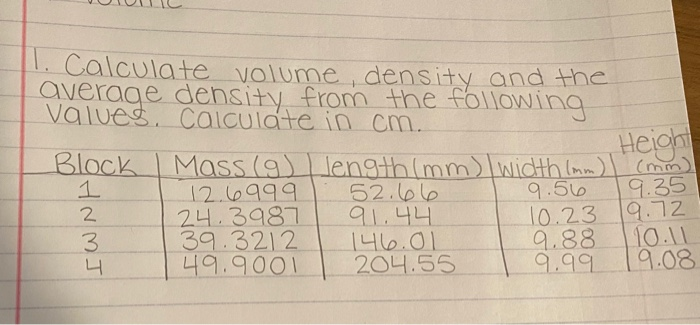 1. Calculate volume, density and the
average density from the following
values. Calculate in cm.
Height
Block Mass(g) length(mm) width(mm) (mm)
1 12.6999 52.66 9.56 9.35
2 24.3987 91.44 10.23 9.72
3 39.3212 146.01 9.88 10.11
4 49.9001 204.55 9.99 9.08